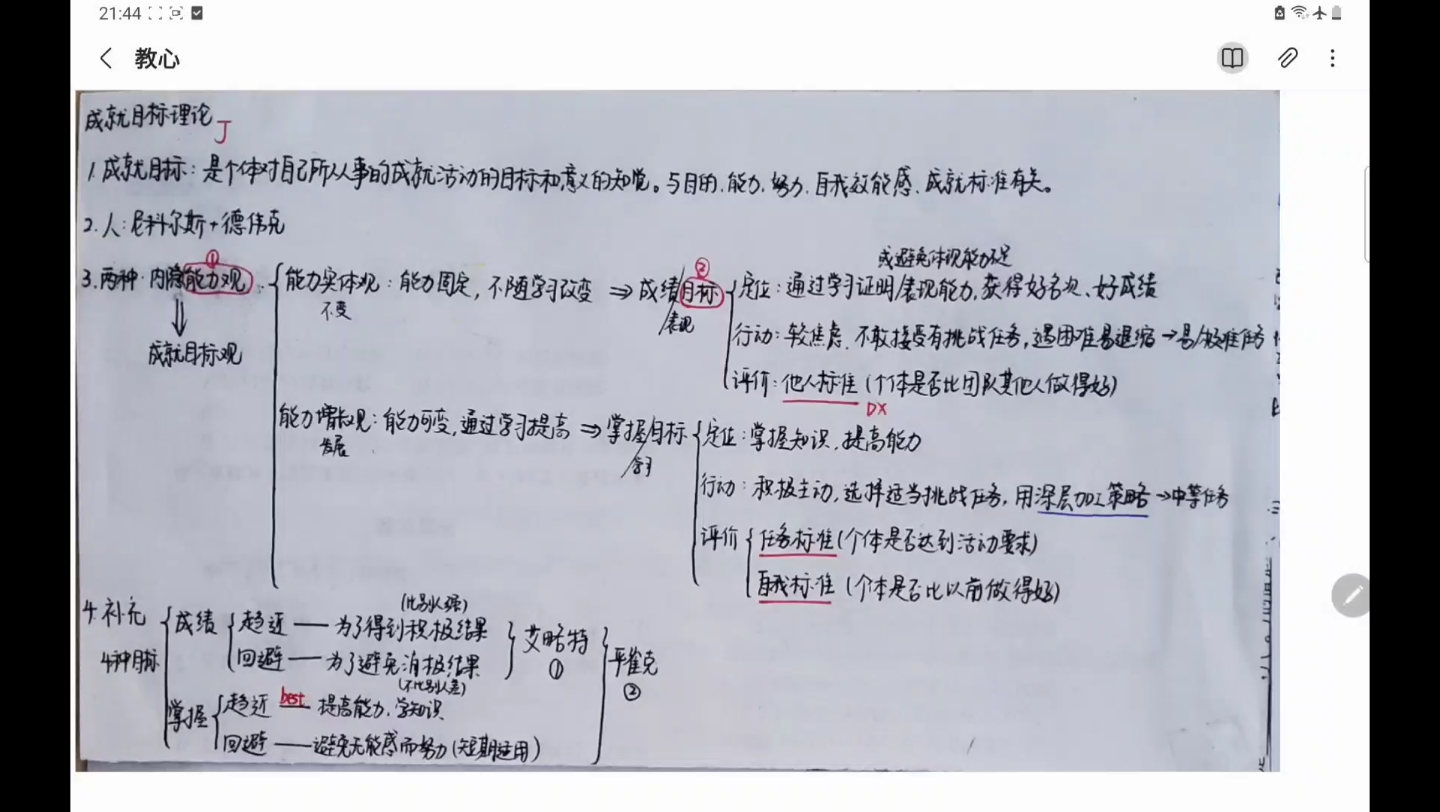 21:44
教心
成就目标理论 J
1.成就目标：是个体对自己所从事的成就活动的目标和意义的知觉。与目的、能力、努力、自我效能感、成就标准有关。
2.人：尼科尔斯+德伟克
3.两种内隐能力观 ①
⇓
成就目标观
能力实体观：能力固定，不随学习改变 ⇒ 成绩目标 ②
不变
/表现
或避免体现能力不足
定位：通过学习证明/表现能力，获得好名次、好成绩
行动：较焦虑、不敢接受有挑战任务，遇困难易退缩→易/较难任务
评价：他人标准（个体是否比团队其他人做得好）
DX
能力增长观：能力可变，通过学习提高 ⇒ 掌握目标
发展
/学习
定位：掌握知识、提高能力
行动：积极主动，选择适当挑战任务，用深层加工策略→中等任务
评价
任务标准（个体是否达到活动要求）
自我标准（个体是否比以前做得好）
4.补充
4种目标
成绩
（比别人强）
趋近——为了得到积极结果
回避——为了避免消极结果
（不比别人差）
艾略特
①
掌握
趋近 best 提高能力、学知识
回避——避免无能感而努力（短期适用）
平崔克
②